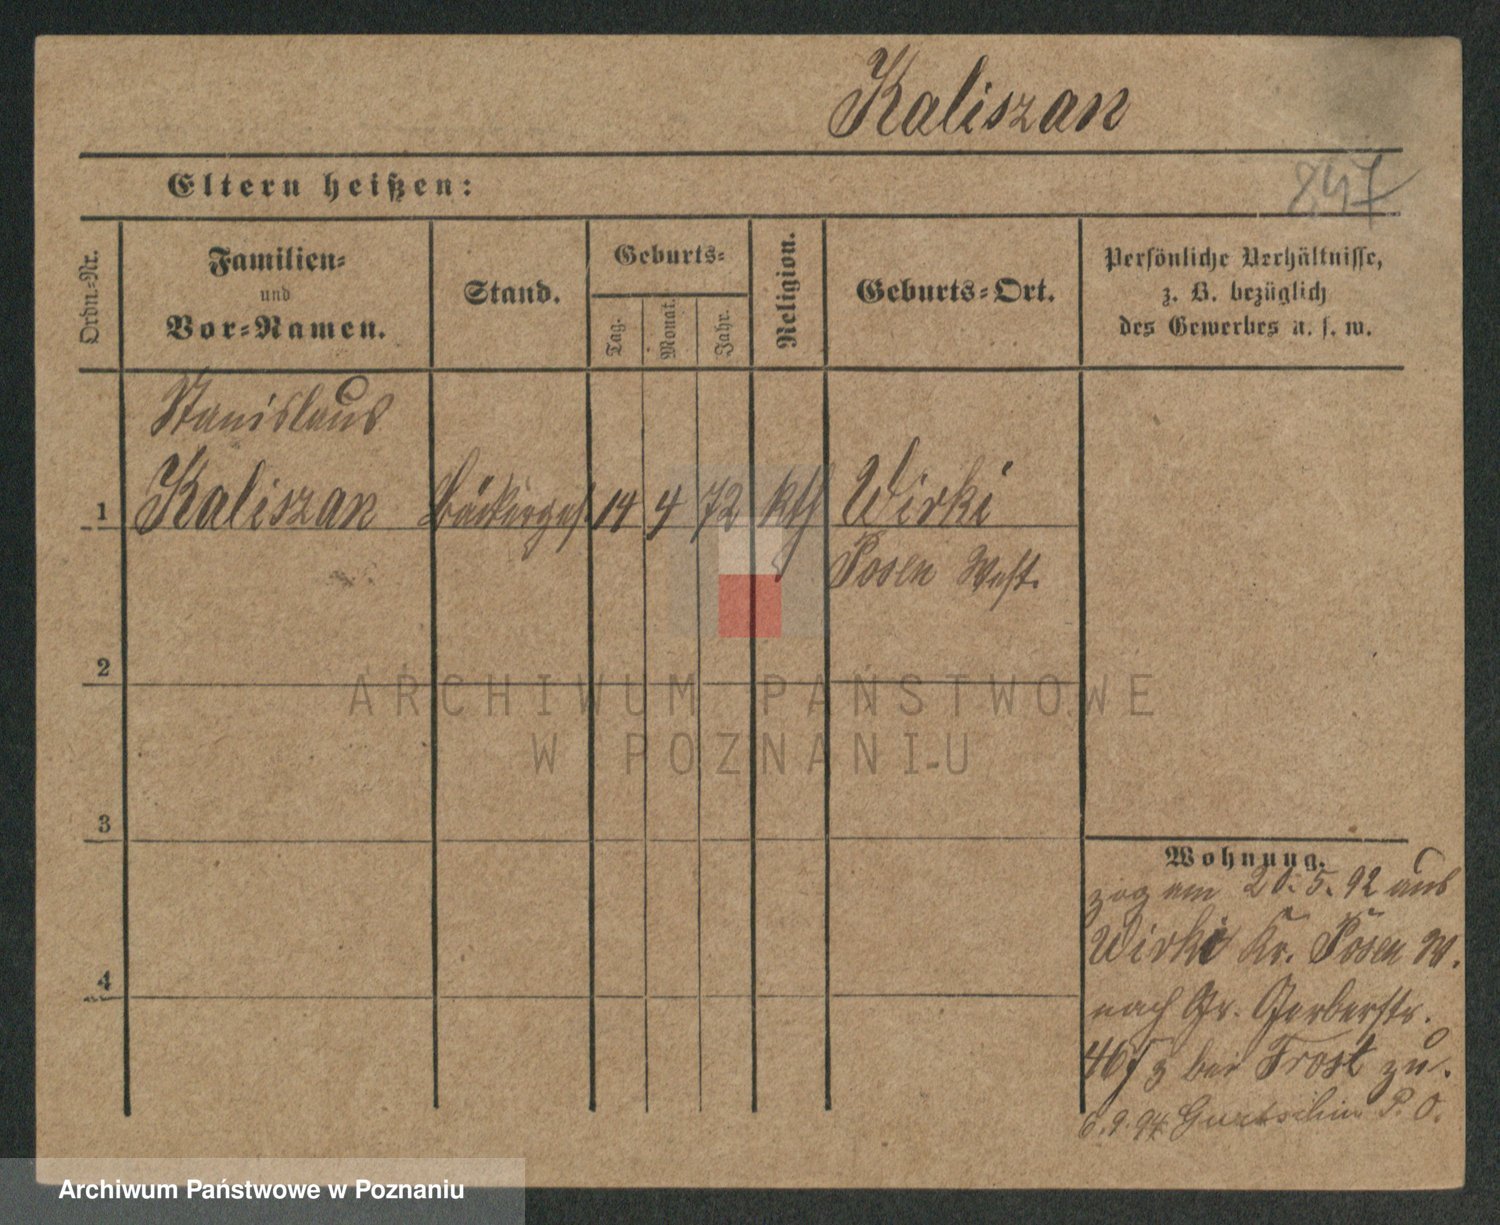 Kaliszan
247
Eltern heißen:
Ordn.-Nr.
Familien-
und
Vor-Namen.
Stand.
Geburts-
Tag.
Monat.
Jahr.
Religion.
Geburts-Ort.
Persönliche Verhältnisse,
z. B. bezüglich
des Gewerbes u. s. w.
Stanislaus
1 Kaliszan Bäckerges. 14 4 72 kth Wirki
Posen West.
2
3
4
Wohnung.
zog am 20. 5. 92 aus
Wirki Kr. Posen W.
nach Gr. Gerberstr.
46 bei Frost zu.
6.9.94 Gurtschin P. O.
ARCHIWUM PAŃSTWOWE
W POZNANIU
Archiwum Państwowe w Poznaniu